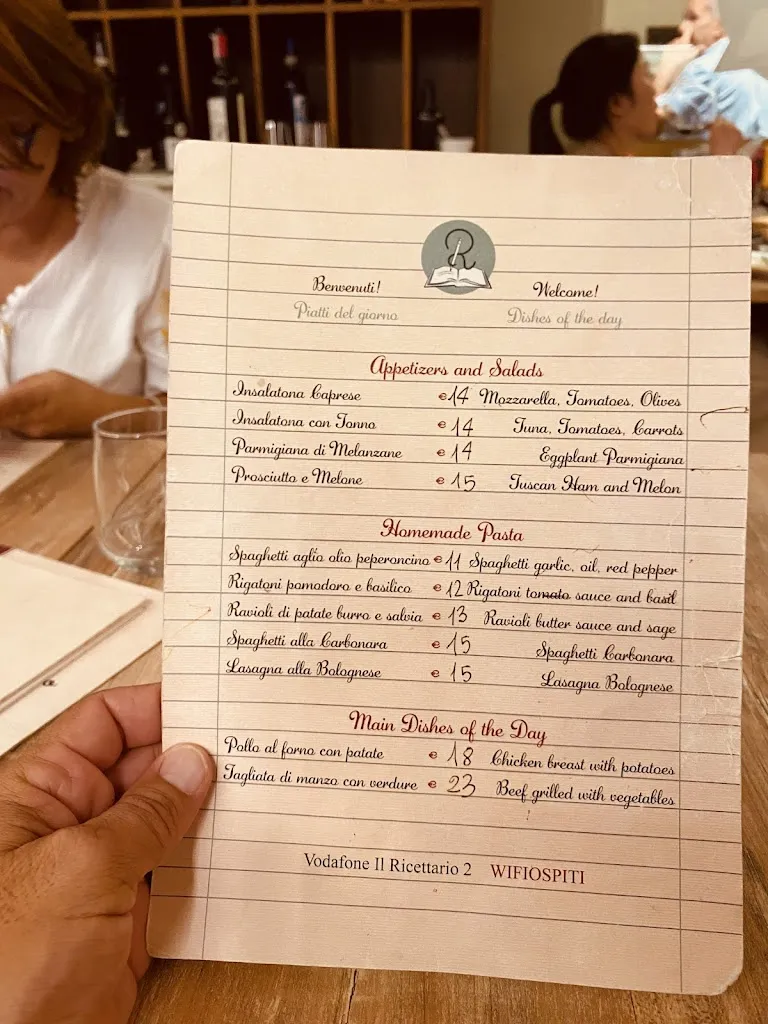 R
Benvenuti! Welcome!
Piatti del giorno Dishes of the day
Appetizers and Salads
Insalatona Caprese € 14 Mozzarella, Tomatoes, Olives
Insalatona con Tonno € 14 Tuna, Tomatoes, Carrots
Parmigiana di Melanzane € 14 Eggplant Parmigiana
Prosciutto e Melone € 15 Tuscan Ham and Melon
Homemade Pasta
Spaghetti aglio olio peperoncino € 11 Spaghetti garlic, oil, red pepper
Rigatoni pomodoro e basilico € 12 Rigatoni tomato sauce and basil
Ravioli di patate burro e salvia € 13 Ravioli butter sauce and sage
Spaghetti alla Carbonara € 15 Spaghetti Carbonara
Lasagna alla Bolognese € 15 Lasagna Bolognese
Main Dishes of the Day
Pollo al forno con patate € 18 Chicken breast with potatoes
Tagliata di manzo con verdure € 23 Beef grilled with vegetables
Vodafone Il Ricettario 2 WIFIOSPITI